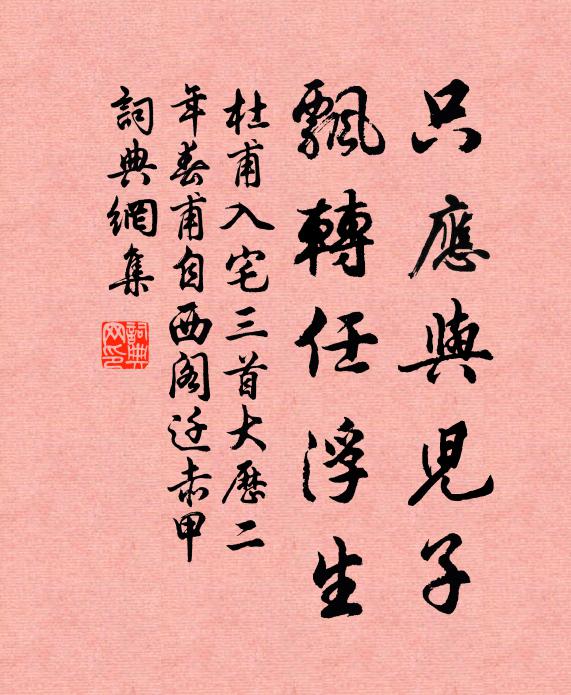 只應與兒子
飄轉任浮生
杜甫入宅三首大歷二
年春甫自西閣遷赤甲
詞典網集
詞典網印